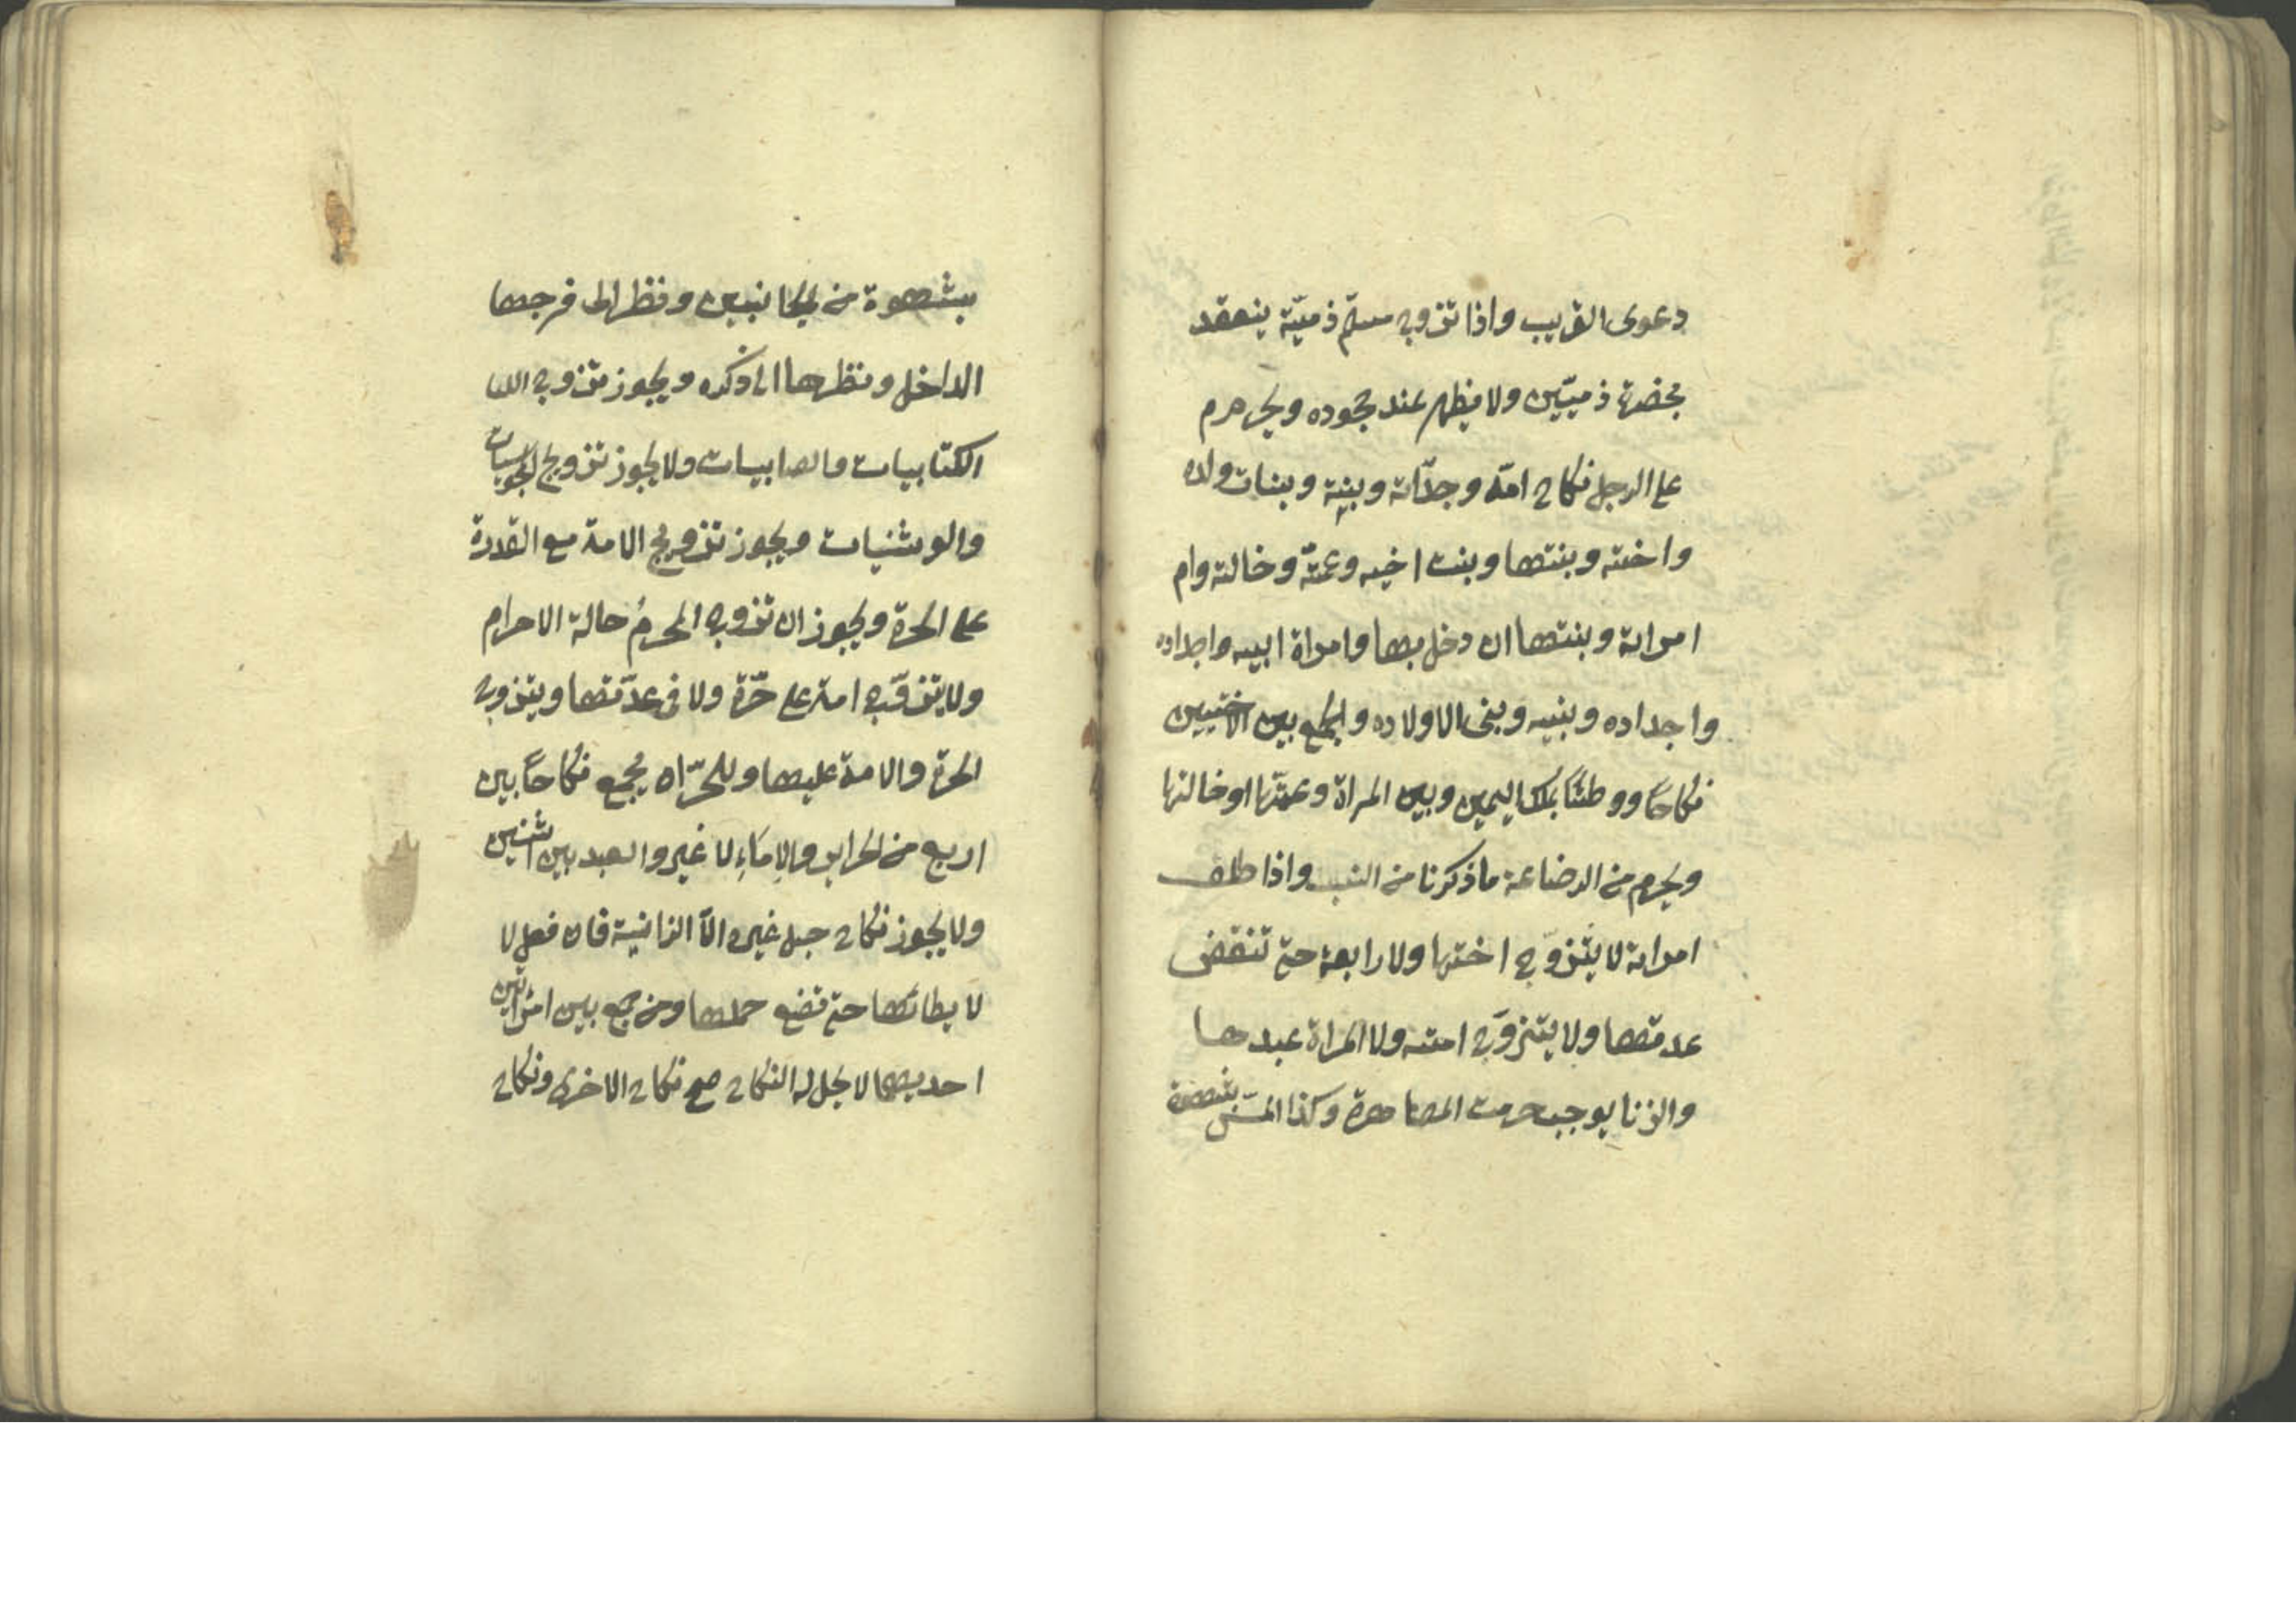 دعوى القريب واذا تزوج مسلم ذميّة ينعقد
بحضرة ذميّين ولا يظهر عند جحوده ويحرم
على الرجل نكاح امّه وجدّاته وبنته وبنات ولده
واخته وبنتها وبنت اخيه وعمّته وخالته وام
امراته وبنتها ان دخل بها وامراة ابيه واجداده
واجداده وبنيه وبنى الاولاده والجمع بين الاختين
نكاحًا ووطئًا بملك اليمين وبين المراة وعمتها او خالتها
ويحرم من الرضاعة ما ذكرنا من النسب واذا طلق
امراته لا يتزوّج اختها ولا رابعة حتى تنقضى
عدتها ولا يتزوّج امته ولا المراة عبدها
والزنا يوجب حرمت المصاهرة وكذا المسّ بشهوة
بشهوة من الجانبين ونظر الى فرجها
الداخل ونظرها الى ذكره ويجوز تزوج
الكتابيات والصابيات ولا يجوز تزويج المجوسيات
والوشنيات ويجوز تزويج الامة مع القدرة
على الحرة ويجوز ان تزوج المحرمُ حالة الاحرام
ولا يتزوّج امة على حرّة ولا فى عدّتها ويتزوج
الحرة والامة عليها وللحرّ ان يجمع نكاحًا بين
اربع من الحراير والاِماءِ لا غير والعبد بين اثنين
ولا يجوز نكاح حبل غيره الّا الزانية فان فعل لا
لا يطائها حتى تضع حملها ومن جمع بين امراتين
احديهما لا يحل له النكاح صح نكاح الاخرى ونكاح